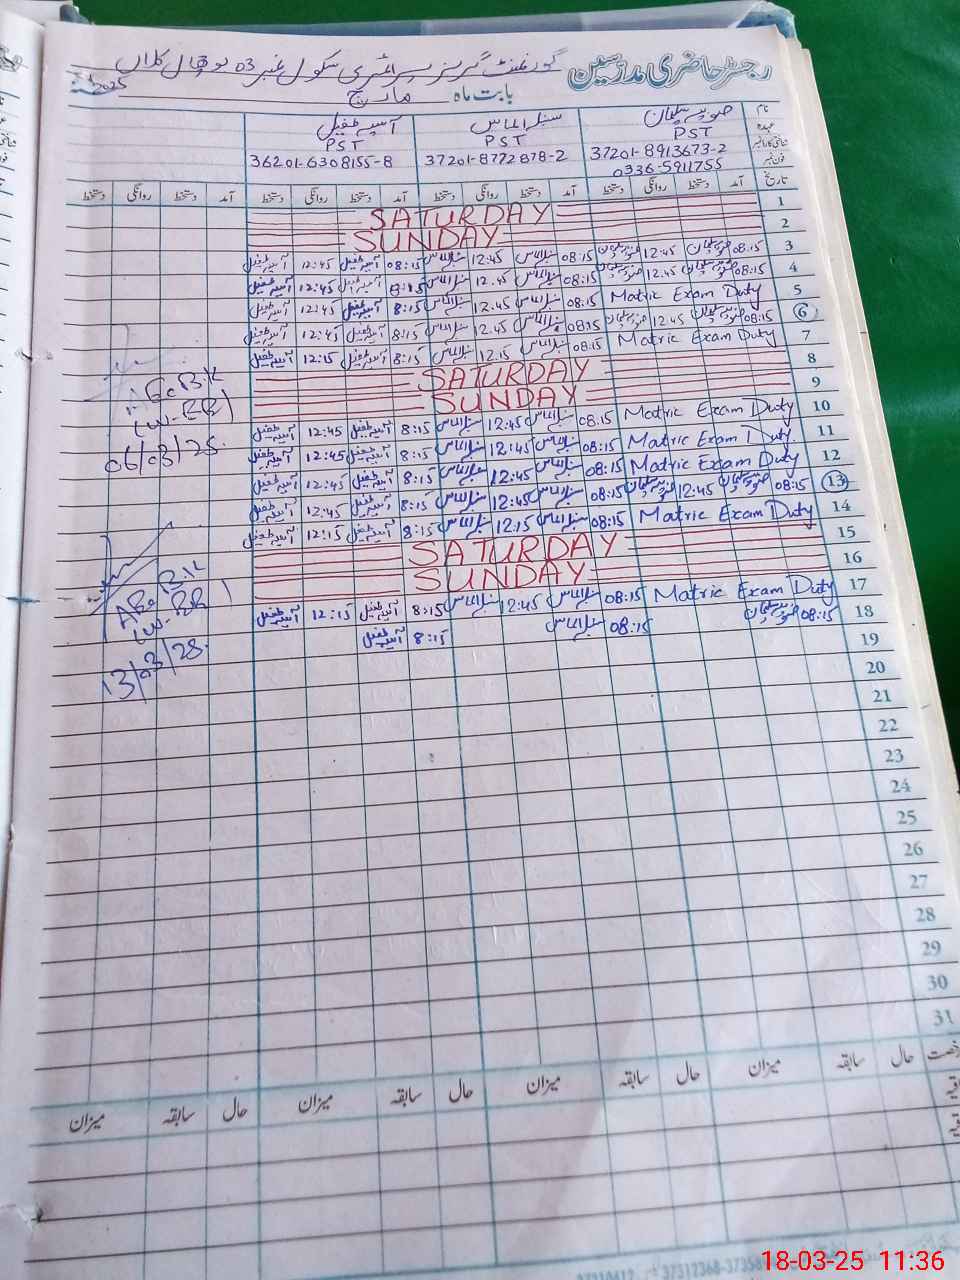 رجسٹر حاضری مدرسین گورنمنٹ گرلز پرائمری سکول نمبر 03 بوچھال کلاں
بابت ماہ مارچ 2025
نام صوبیہ سلطان سنبل الماس آسیہ طفیل
عہدہ PST PST PST
37201-8913673-2 37201-8772878-2 36201-6308155-8
فون نمبر 0336-5911755
تاریخ آمد دستخط روانگی دستخط آمد دستخط روانگی دستخط آمد دستخط روانگی دستخط آمد دستخط روانگی دستخط
1 SATURDAY
2 SUNDAY
3 08:15 صوبیہ سلطان 12:45 صوبیہ سلطان 08:15 سنبل الماس 12:45 سنبل الماس 08:15 آسیہ طفیل 12:45 آسیہ طفیل
4 08:15 صوبیہ سلطان 12:45 صوبیہ سلطان 08:15 سنبل الماس 12:45 سنبل الماس 8:15 آسیہ طفیل 12:45 آسیہ طفیل
5 Matric Exam Duty 08:15 سنبل الماس 12:45 سنبل الماس 8:15 آسیہ طفیل 12:45 آسیہ طفیل
6 08:15 صوبیہ سلطان 12:45 صوبیہ سلطان 08:15 سنبل الماس 12:45 سنبل الماس 8:15 آسیہ طفیل 12:45 آسیہ طفیل
7 Matric Exam Duty 08:15 سنبل الماس 12:15 سنبل الماس 8:15 آسیہ طفیل 12:15 آسیہ طفیل
8 SATURDAY
9 SUNDAY
10 Matric Exam Duty 08:15 سنبل الماس 12:45 سنبل الماس 8:15 آسیہ طفیل 12:45 آسیہ طفیل
11 Matric Exam Duty 08:15 سنبل الماس 12:45 سنبل الماس 8:15 آسیہ طفیل 12:45 آسیہ طفیل
12 Matric Exam Duty 08:15 سنبل الماس 12:45 سنبل الماس 8:15 آسیہ طفیل 12:45 آسیہ طفیل
13 08:15 صوبیہ سلطان 12:45 صوبیہ سلطان 08:15 سنبل الماس 12:45 سنبل الماس 8:15 آسیہ طفیل 12:45 آسیہ طفیل
14 Matric Exam Duty 08:15 سنبل الماس 12:15 سنبل الماس 8:15 آسیہ طفیل 12:15 آسیہ طفیل
15 SATURDAY
16 SUNDAY
17 Matric Exam Duty 08:15 سنبل الماس 12:45 سنبل الماس 8:15 آسیہ طفیل 12:15 آسیہ طفیل
18 08:15 صوبیہ سلطان 08:15 سنبل الماس 8:15 آسیہ طفیل
19
20
21
22
23
24
25
26
27
28
29
30
31
AEO B.K
(W-BR)
06/03/25
AEO B.K
(W-BR)
13/03/25
رخصت حال سابقہ میزان حال سابقہ میزان حال سابقہ میزان حال سابقہ میزان
18-03-25 11:36